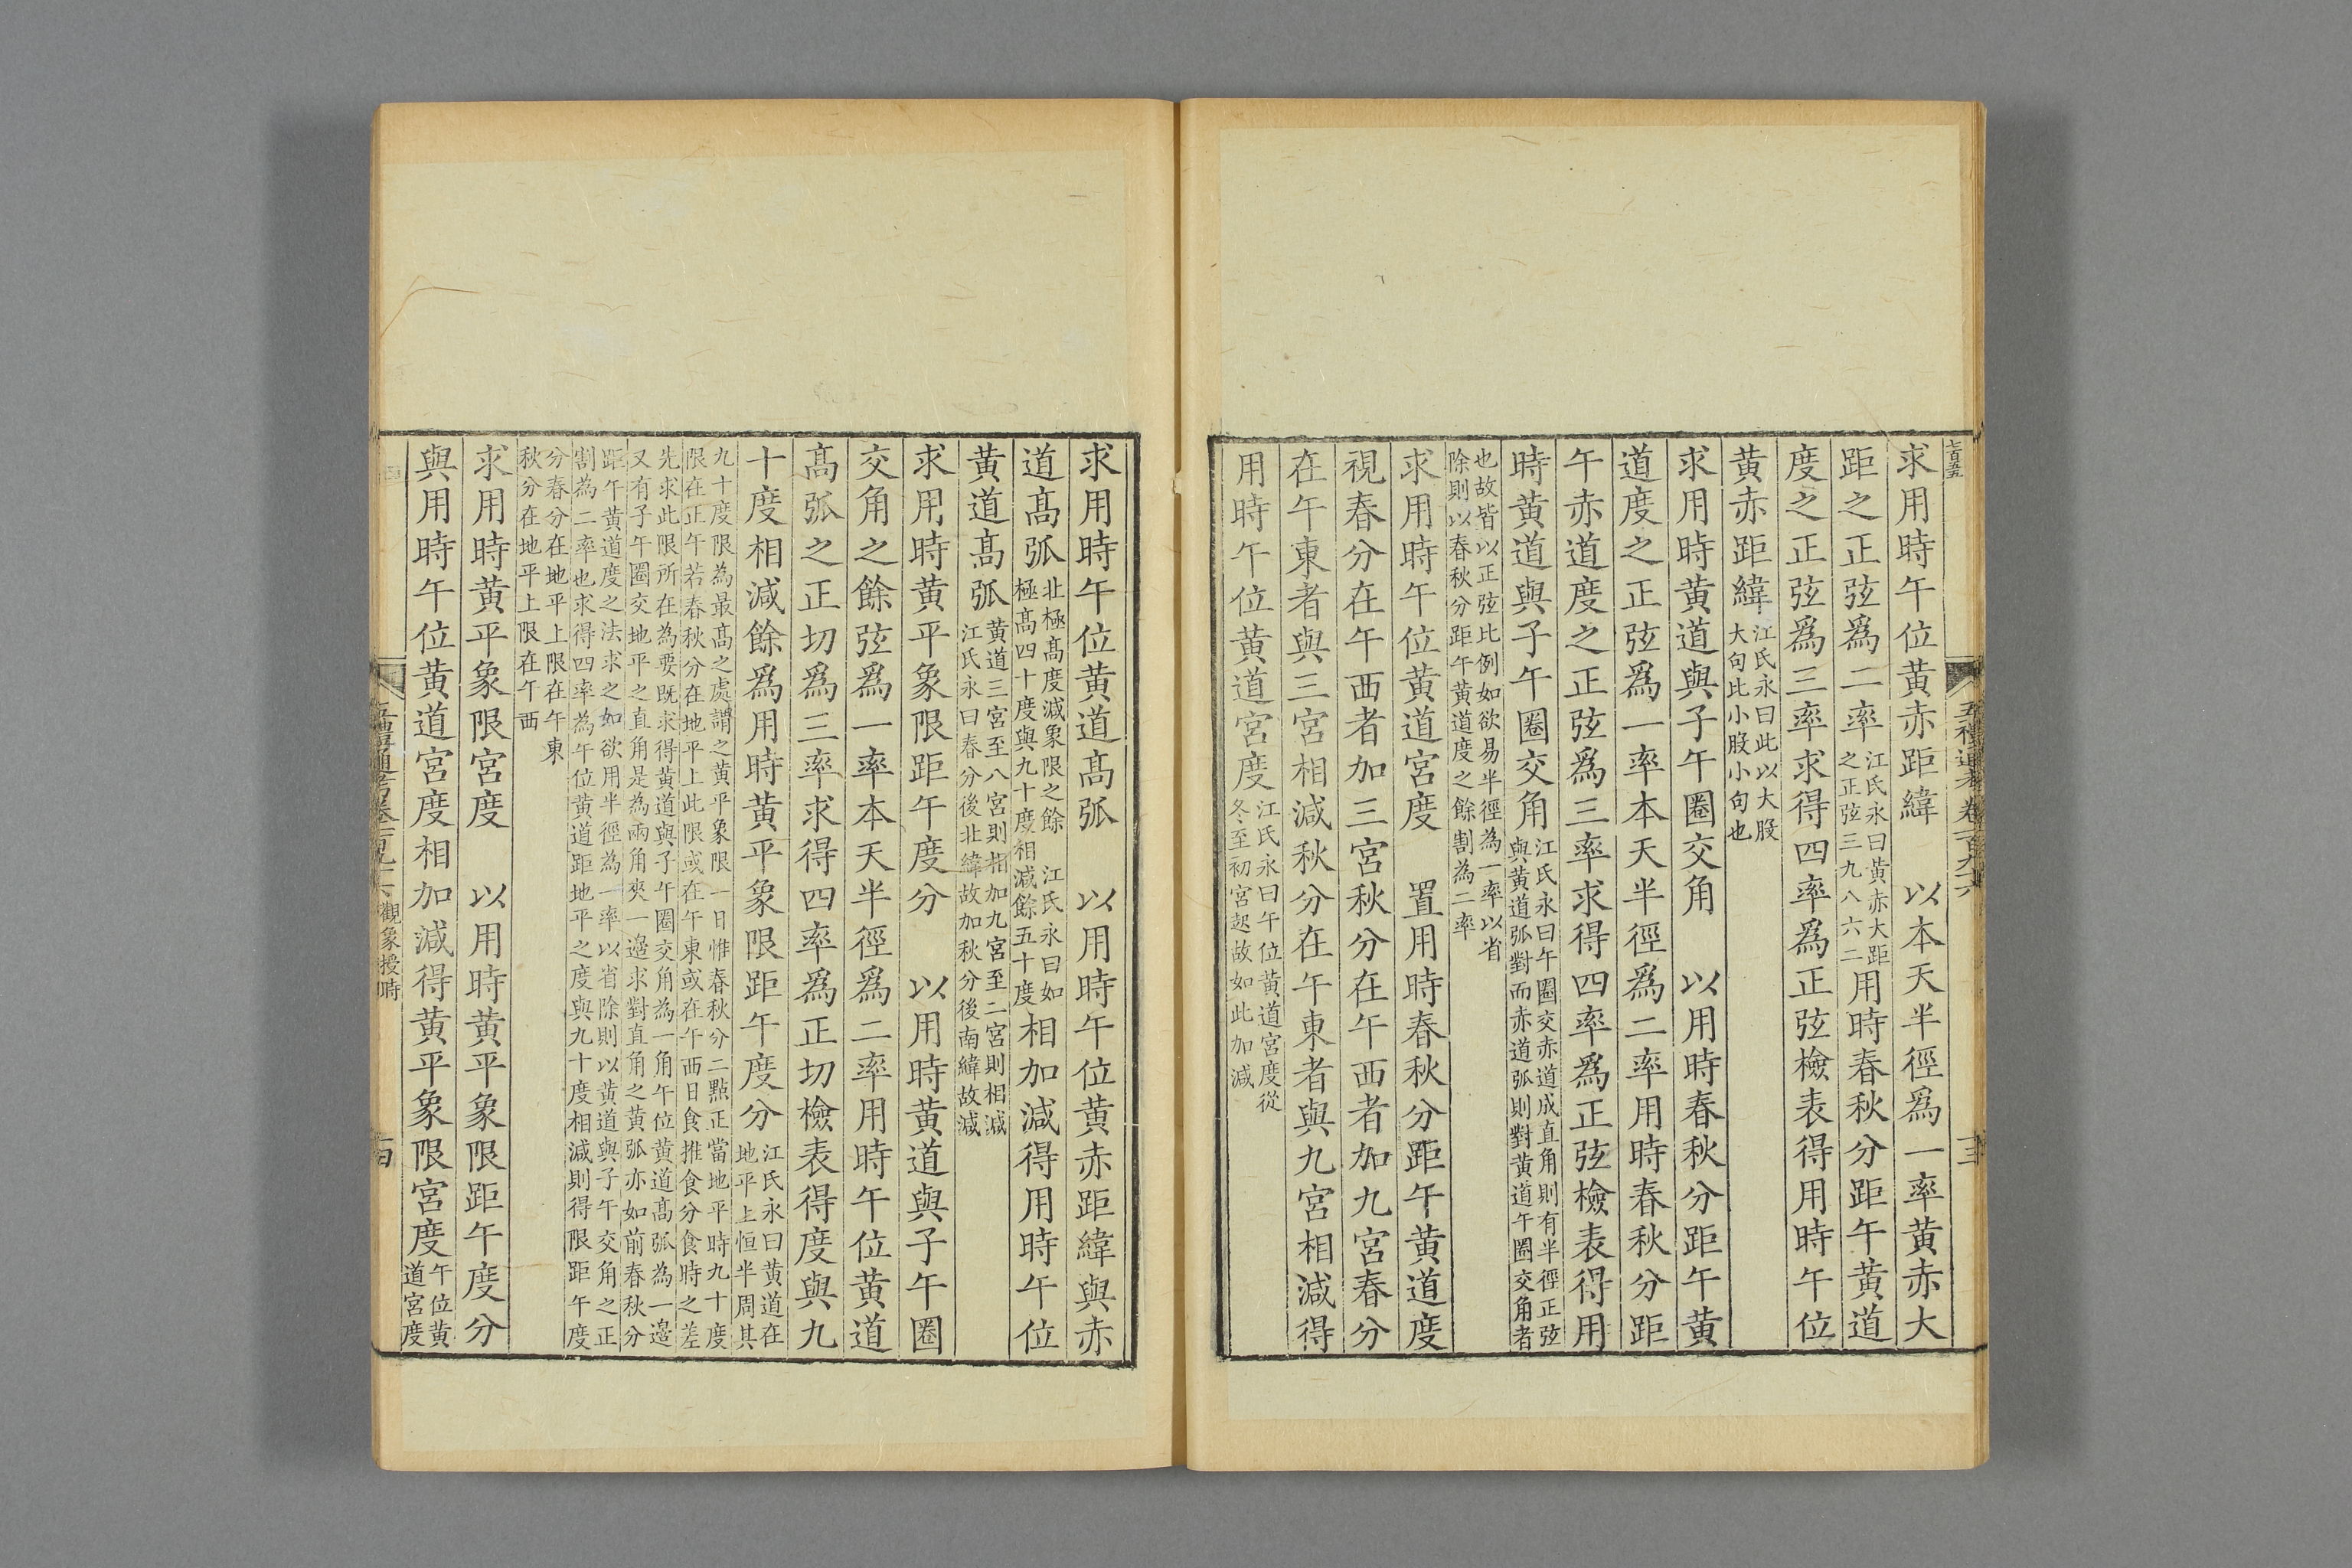 七百五五
五禮通考卷一百九十六
十三
求用時午位黄赤距緯　以本天半徑爲一率黄赤大
距之正弦爲二率江氏永曰黄赤大距之正弦三九八六二用時春秋分距午黄道
度之正弦爲三率求得四率爲正弦檢表得用時午位
黄赤距緯江氏永曰此以大股大句比小股小句也
求用時黄道與子午圈交角　以用時春秋分距午黄
道度之正弦爲一率本天半徑爲二率用時春秋分距
午赤道度之正弦爲三率求得四率爲正弦檢表得用
時黄道與子午圈交角江氏永曰午圈交赤道成直角則有半徑正弦與黄道弧對而赤道弧則對黄道午圈交角者
也故皆以正弦比例如欲易半徑為一率以省除則以春秋分距午黄道度之餘割為二率
求用時午位黄道宮度　置用時春秋分距午黄道度
視春分在午西者加三宮秋分在午西者加九宮春分
在午東者與三宮相減秋分在午東者與九宮相減得
用時午位黄道宮度江氏永曰午位黄道宮度從冬至初宮起故如此加減
求用時午位黄道高弧　以用時午位黄赤距緯與赤
道高弧北極高度減象限之餘　江氏永曰如極高四十度與九十度相減餘五十度相加減得用時午位
黄道高弧黄道三宮至八宮則相加九宮至二宮則相減江氏永曰春分後北緯故加秋分後南緯故減
求用時黄平象限距午度分　以用時黄道與子午圈
交角之餘弦爲一率本天半徑爲二率用時午位黄道
高弧之正切爲三率求得四率爲正切檢表得度與九
十度相減餘爲用時黄平象限距午度分江氏永曰黄道在地平上恒半周其
九十度限為最高之處謂之黄平象限一日惟春秋分二點正當地平時九十度限在正午若春秋分在地平上此限或在午東或在午西日食推食分食時之差
先求此限所在為要既求得黄道與子午圈交角為一角午位黄道高弧為一邊又有子午圈交地平之直角是為兩角夾一邊求對直角之黄弧亦如前春秋分
距午黄道度之法求之如欲用半徑為一率以省除則以黄道與子午交角之正割為二率也求得四率為午位黄道距地平之度與九十度相減則得限距午度
分春分在地平上限在午東秋分在地平上限在午西
求用時黄平象限宮度　以用時黄平象限距午度分
與用時午位黄道宮度相加減得黄平象限宮度午位黄道宮度
五禮通考卷一百九十六　觀象授時
十四